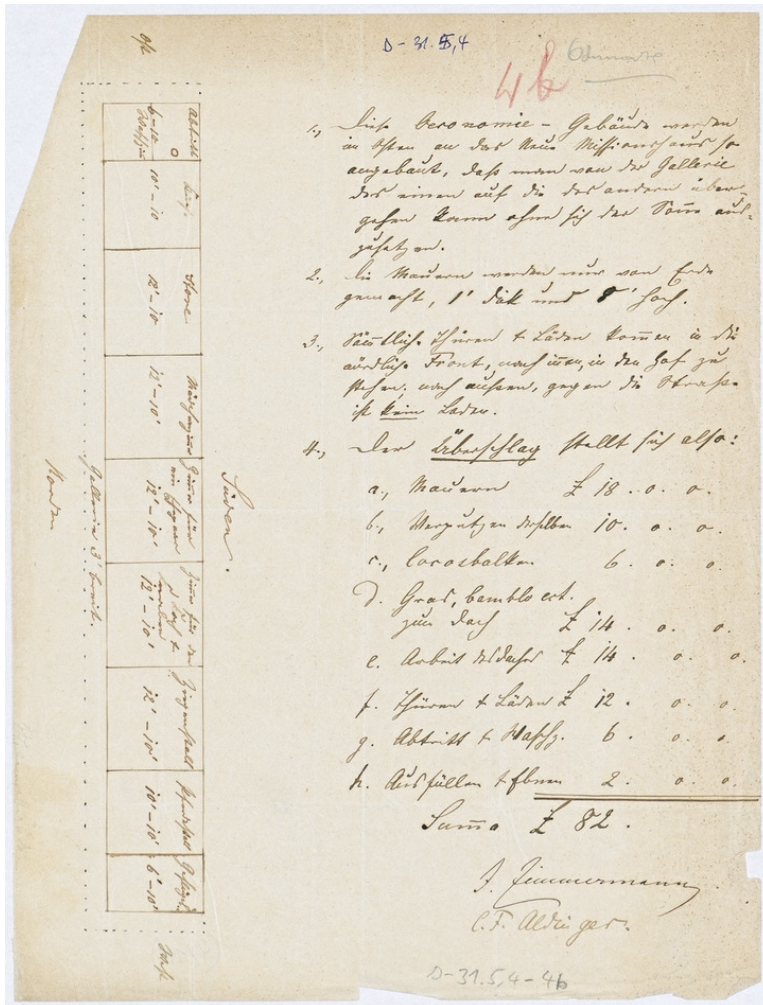 D-31.5,4
4b
1., Diese Oeconomie-Gebäude werden
im Osten an das Neue Missionshaus so
angebaut, daß man von der Gallerie
des einen auf die des andern über-
gehen kann ohne sich der Sonne aus-
zusetzen.
2., Die Mauern werden nur von Erde
gemacht, 1' dik und 8' hoch.
3., Sämtliche Thüren & Läden kommen in die
nördliche Front, nach innen, in den Hof zu
stehen, nach außen, gegen die Straße
ist kein Laden.
4., Der Überschlag stellt sich also:
a., Mauern £ 18. o. o.
b., Verputzen derselben 10. o. o.
c., Cocosbalken 6. o. o.
d. Gras, bamblo ect.
zum Dach £ 14. o. o.
e. Arbeit des Daches £ 14. o. o.
f. Thüren & Läden £ 12. o. o.
g. Abtritt & Waschz. 6. o. o.
h. Ausfüllen & Ebnen 2. o. o.
Summa £ 82.
J. Zimmermann
C.F. Aldinger.
D-31.5,4-4b
Ost
Abtritt
6-10
10'-10
Store
12'-10
12'-10'
Zimmer für
12'-10'
Zimmer für den
12'-10'
Ziegenstall
12'-10'
Pferdestall
10'-10'
Geflügel.
6'-10'
West
Süden.
Gallerie 3' breit.
Norden